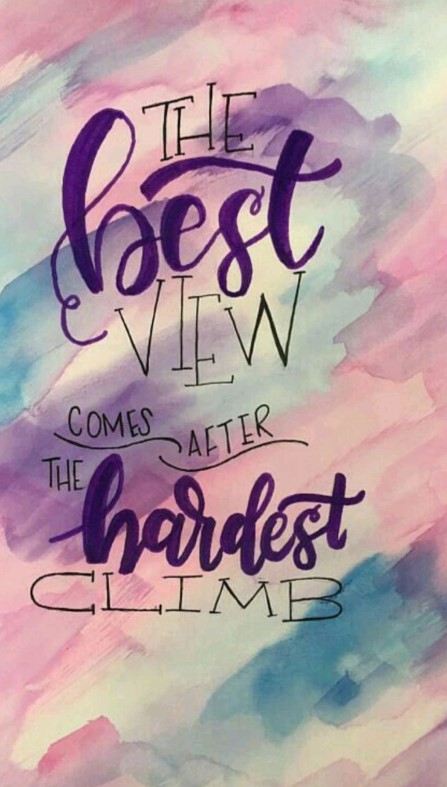 THE
best
VIEW
COMES
AFTER
THE hardest
CLIMB